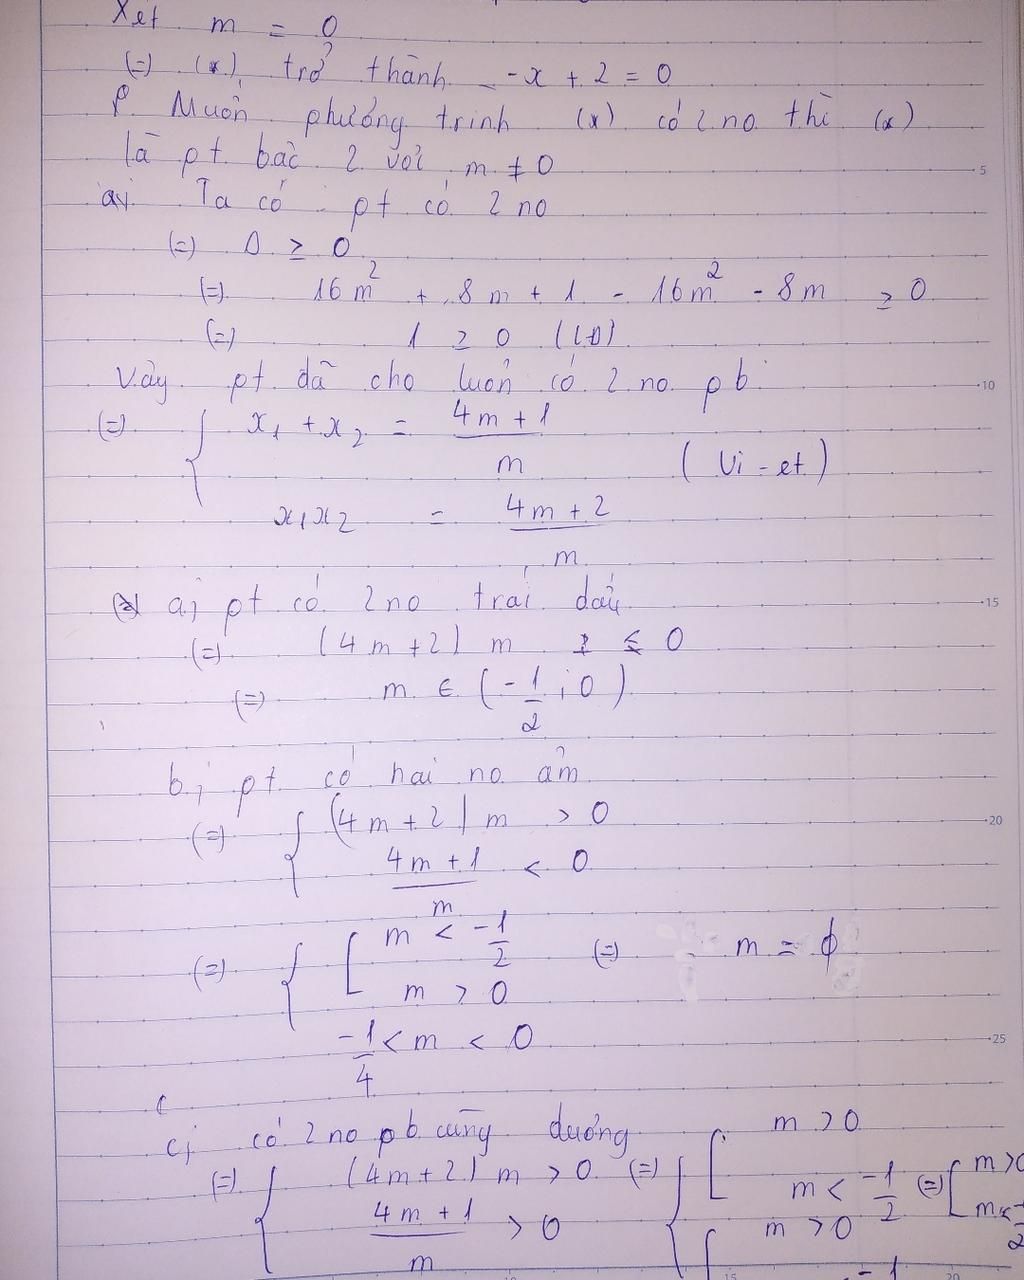 Xét m = 0
(=) (x) trở thành -x + 2 = 0
Muốn phương trình (x) có 2 no thì (x)
là pt bậc 2 với m ≠ 0
a, Ta có pt có 2 no
(=) Δ ≥ 0
(=) 16m² + 8m + 1 - 16m² - 8m ≥ 0
(=) 1 ≥ 0 (LĐ)
Vậy pt đã cho luôn có 2 no pb
(=) { x₁ + x₂ = (4m + 1)/m
(Vi-et)
x₁x₂ = (4m + 2)/m
a, pt có 2 no trái dấu
(=) (4m + 2) m ≤ 0
(=) m ∈ (-1/2 ; 0)
b, pt có hai no âm
(=) { (4m + 2) m > 0
(4m + 1)/m < 0
(=) { [ m < -1/2 (=) m = ϕ
m > 0
-1/4 < m < 0
c, có 2 no pb cùng dương
(=) { (4m + 2) m > 0 (=) { [ m > 0
m < -1/2 (=) [ m > 0
(4m + 1)/m > 0 [ m > 0